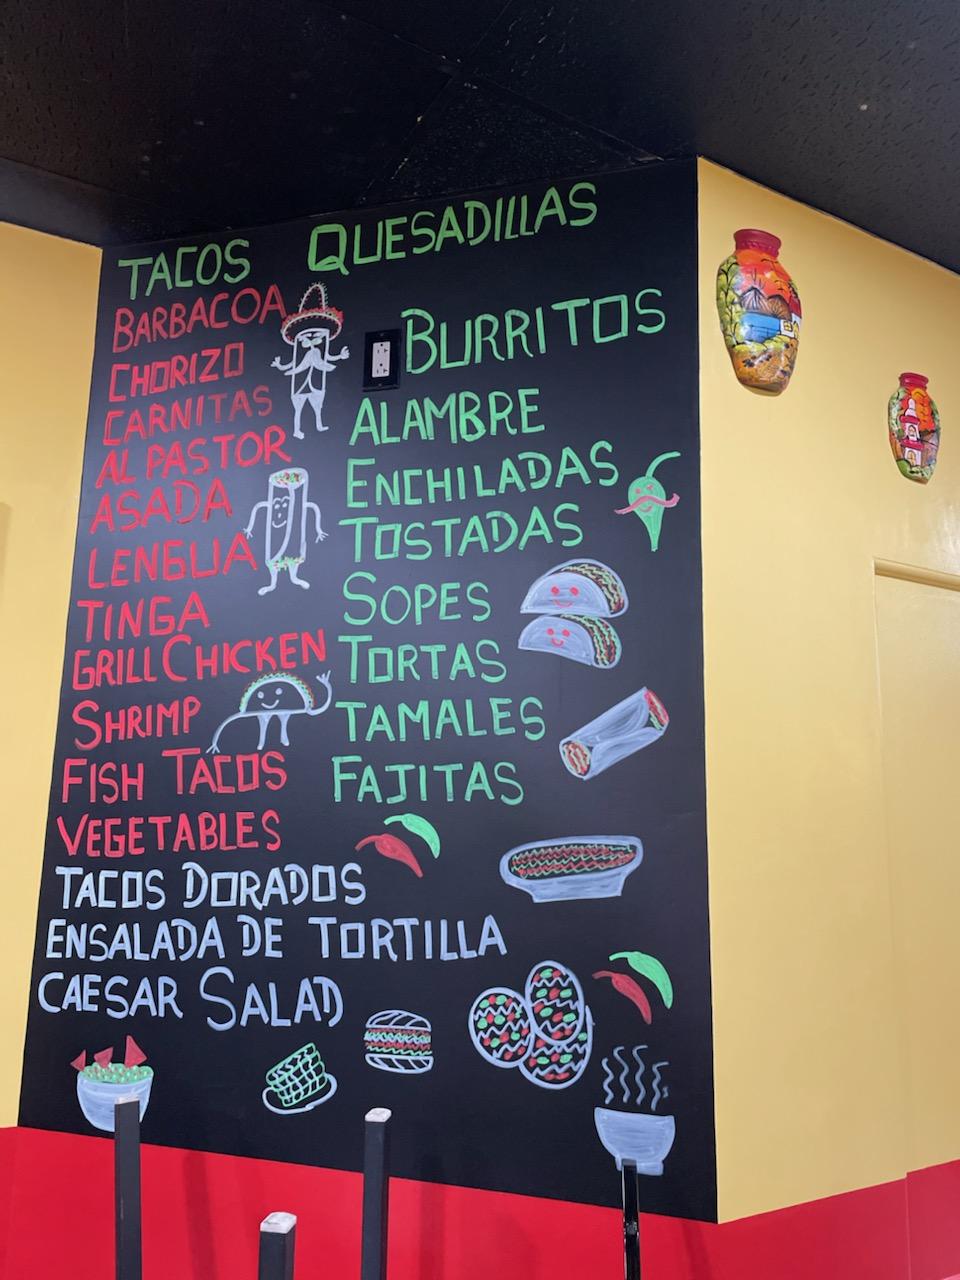 TACOS QUESADILLAS
BARBACOA
CHORIZO
CARNITAS
AL PASTOR
ASADA
LENGUA
TINGA
GRILL CHICKEN
SHRIMP
FISH TACOS
VEGETABLES
BURRITOS
ALAMBRE
ENCHILADAS
TOSTADAS
SOPES
TORTAS
TAMALES
FAJITAS
TACOS DORADOS
ENSALADA DE TORTILLA
CAESAR SALAD